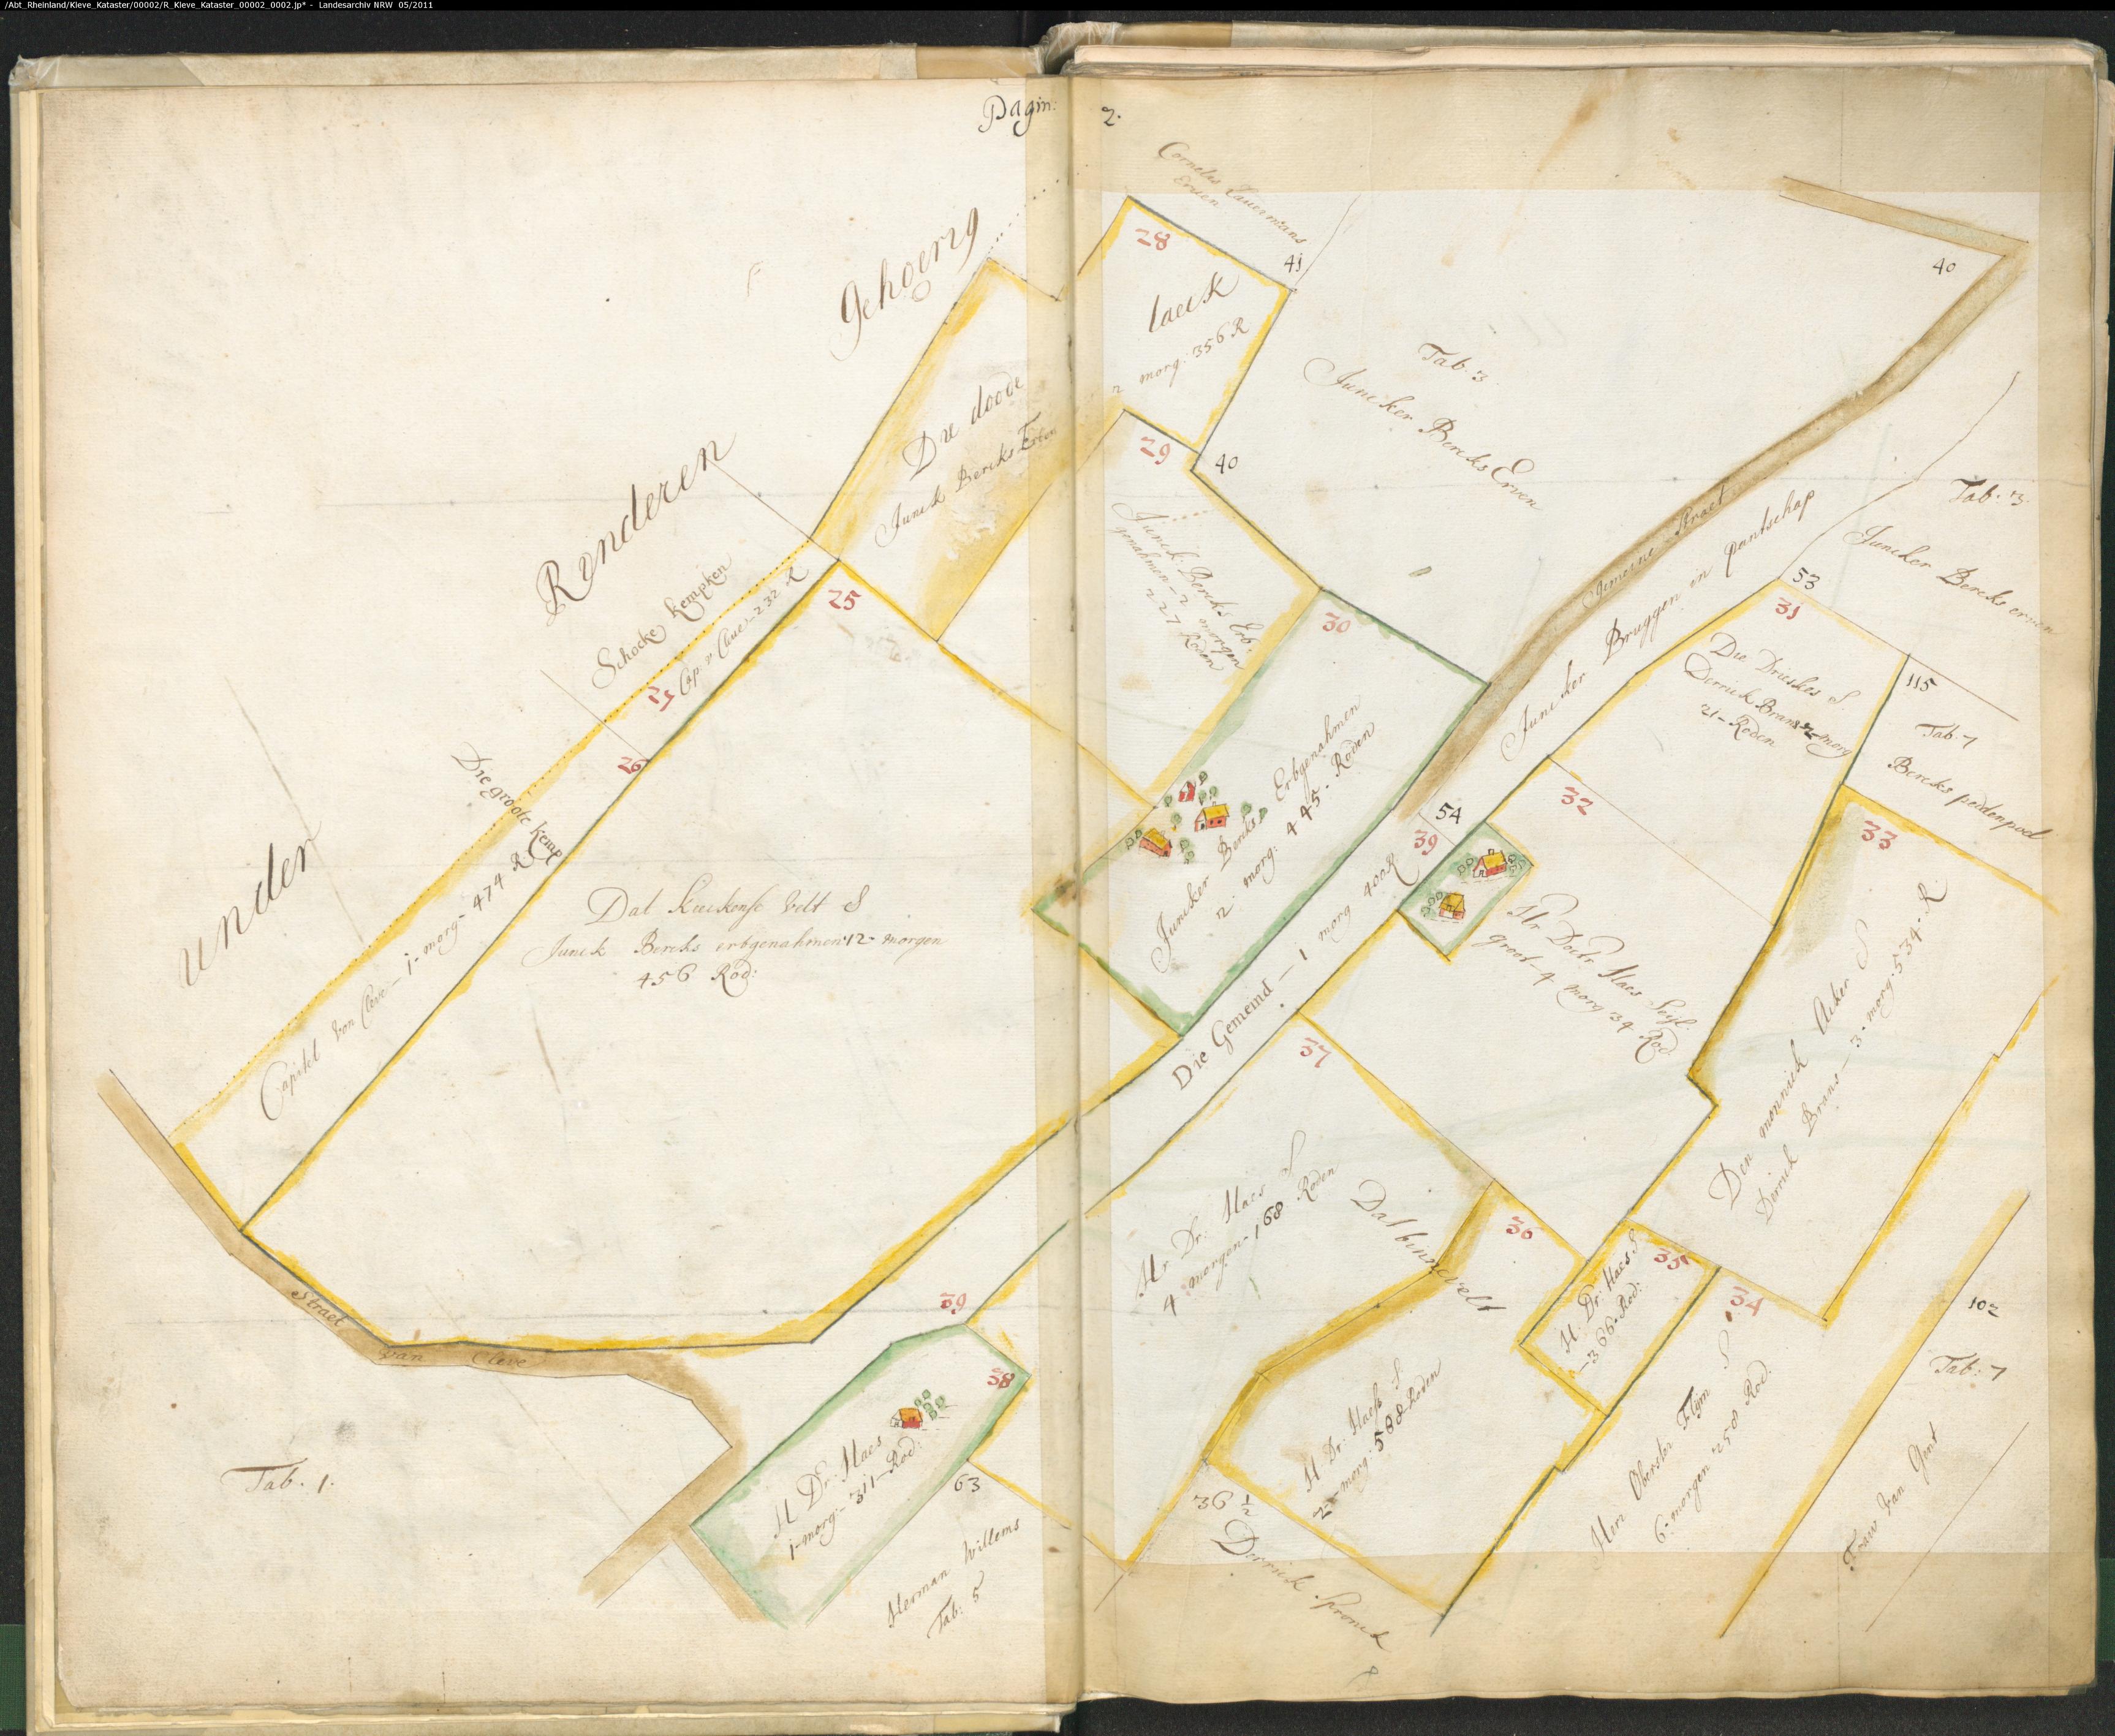 /Abt_Rheinland/Kleve_Kataster/00002/R_Kleve_Kataster_00002_0002.jp* - Landesarchiv NRW 05/2011
Pagin: 2.
unden
Rynderen
Gehoerig
Cornelis Lauermans
Erven
28
41
laeck
2 morg: 356 R
Die doode
Junck Bercks Erben
40
Tab. 3
Juncker Bercks Erven
29
40
Junck: Bercks Erb
genahmen - 2 morgen
227 Roden
Straet
Juncker Bruggen in pantschap
Tab. 3
Juncker Bercks erven
53
31
Die Drieskes S
Derrick Brans 2 morg
21 - Roden
115
Tab. 7
Bercks peddenpoel
Schocke kempken
25
Cap v Cleve - 232 R
25
26
Die groote kemp
Capitel von Cleve - 1 - morg - 474 R
30
Juncker Bercks Erbgenahmen
2 morg: 445 - Roden
54
39
32
33
Hr Doctr Haes
groot - 4 morg 34
Rod
Dat Kuckense Velt S
Junck Bercks erbgenahmen 12 - morgen
456 Rod:
Die Gemeind - 1 morg 400 R
Den monnick Acker S
Derrick Brans - 3 - morg: 534 - R
37
Hr. Dr. Haes S
4 morgen - 168 Roden
Dat binnevelt
36
35
H. Dr. Haes S
- 366 - Rod:
34
102
Tab: 7
Straet
van Cleve
39
38
H Dr. Haes
1 - morg - 311 - Rod:
63
Herman Willems
Tab: 5
Tab. 1.
H Dr: Haess S.
2 - morg: 588 Roden
36 ½
Derrick Spronck
Herr Oberster Flijm S
6 - morgen 250 Rod.
Fraw van Gent